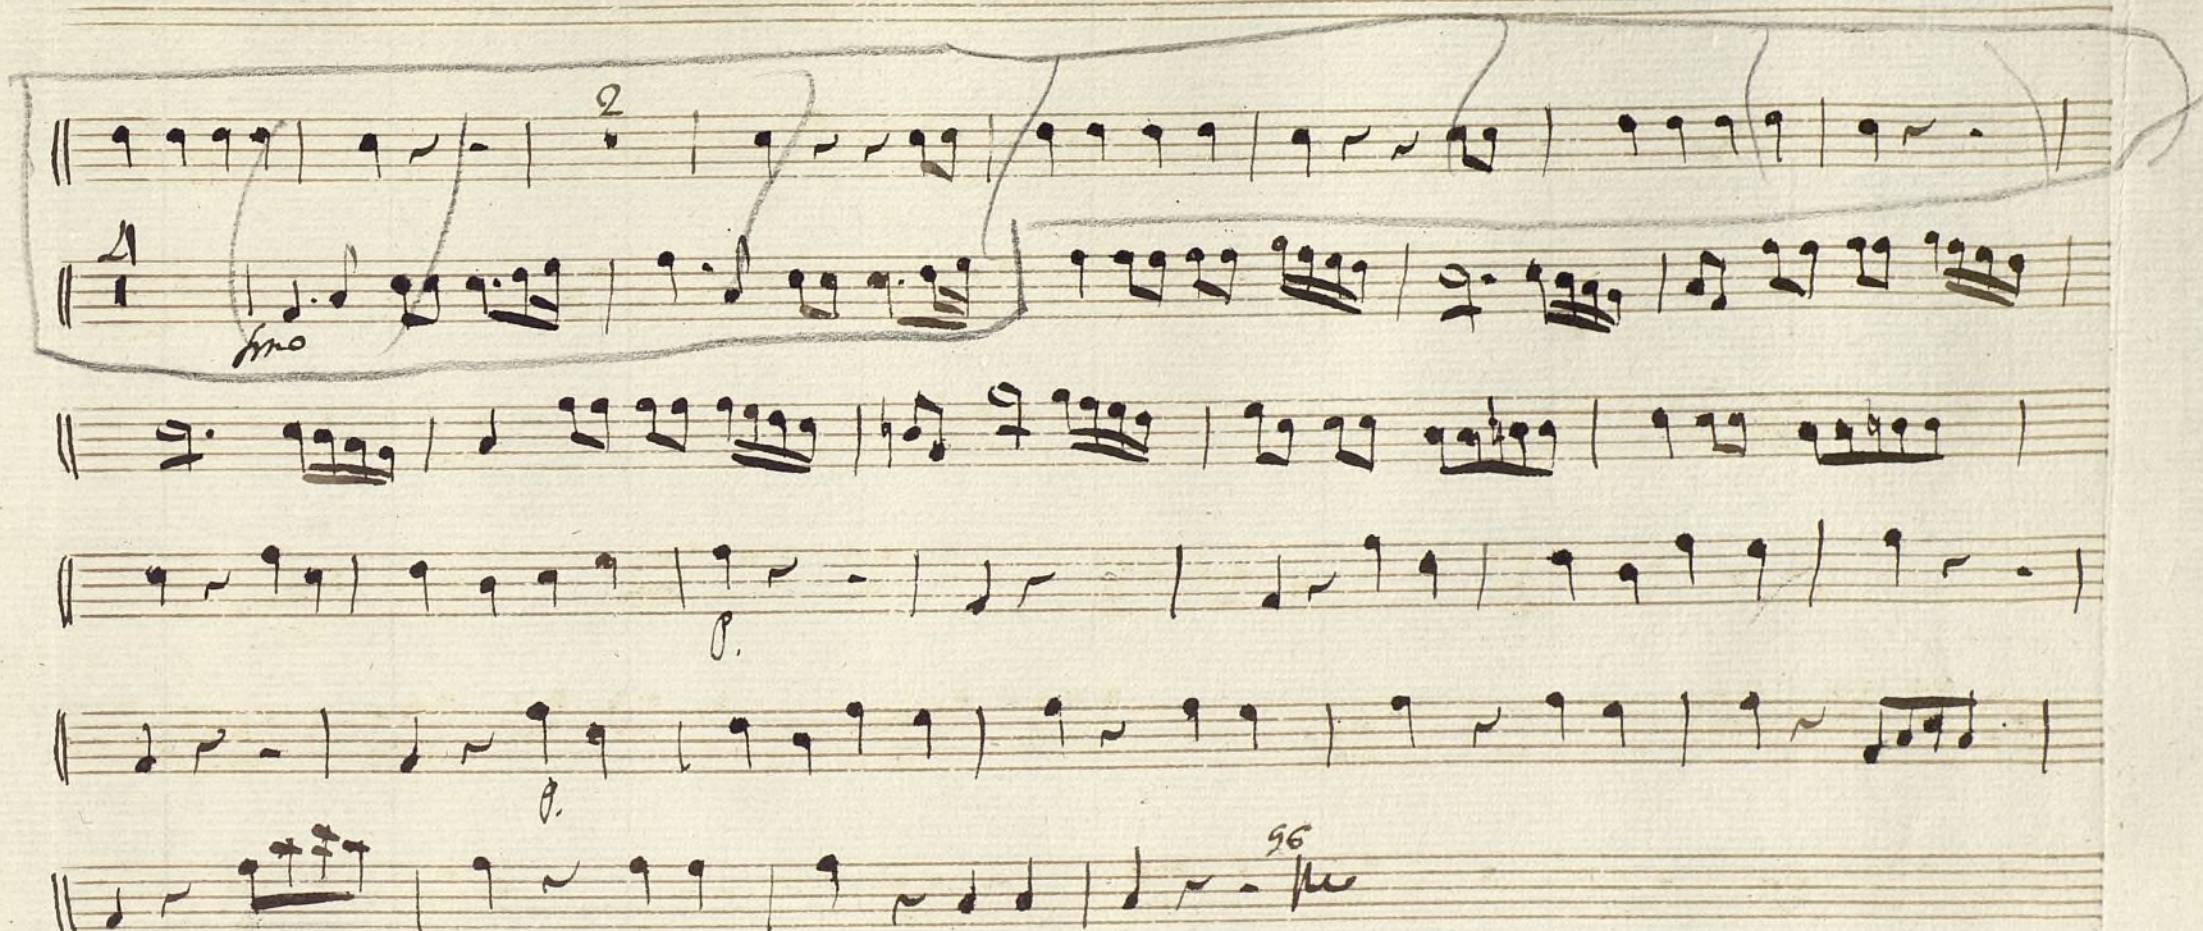 2
4
fmo
p.
p.
96